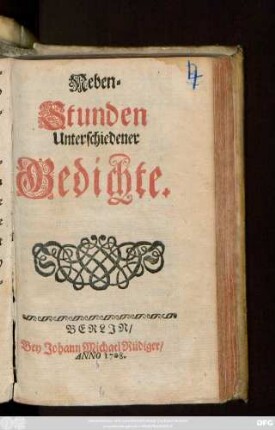 Neben-
Stunden
Unterschiedener
Gedichte.
BERLIN/
Bey Johann Michael Rüdiger/
ANNO 1708.